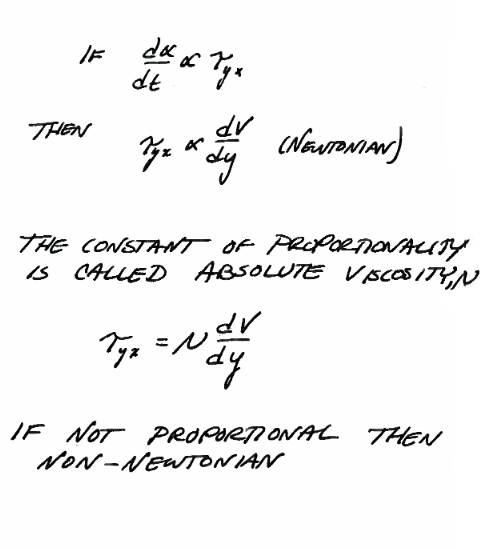 IF dα/dt ∝ τyx
THEN τyx ∝ dV/dy (NEWTONIAN)
THE CONSTANT OF PROPORTIONALITY
IS CALLED ABSOLUTE VISCOSITY, μ
τyx = μ dV/dy
IF NOT PROPORTIONAL THEN
NON-NEWTONIAN